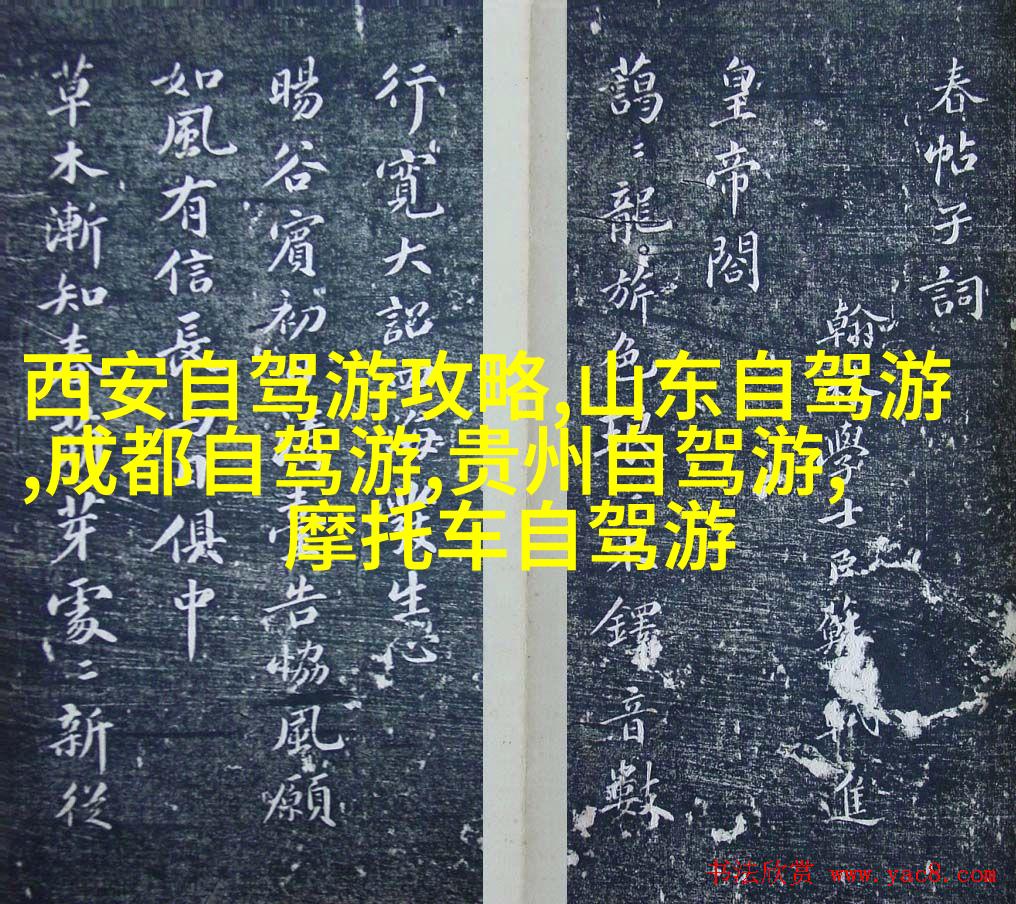 春帖子詞
翰林學士臣蘇軾進
皇帝閤
藹〻龍旂色
鐸音數
行寬大記四海
生心
暘谷賓初
告協風願
如風有信長
俱中
草木漸知春
芽處〻新從
西安自驾游攻略,山东自驾游
,成都自驾游,贵州自驾游,
摩托车自驾游
书法欣赏 www.yac8.com